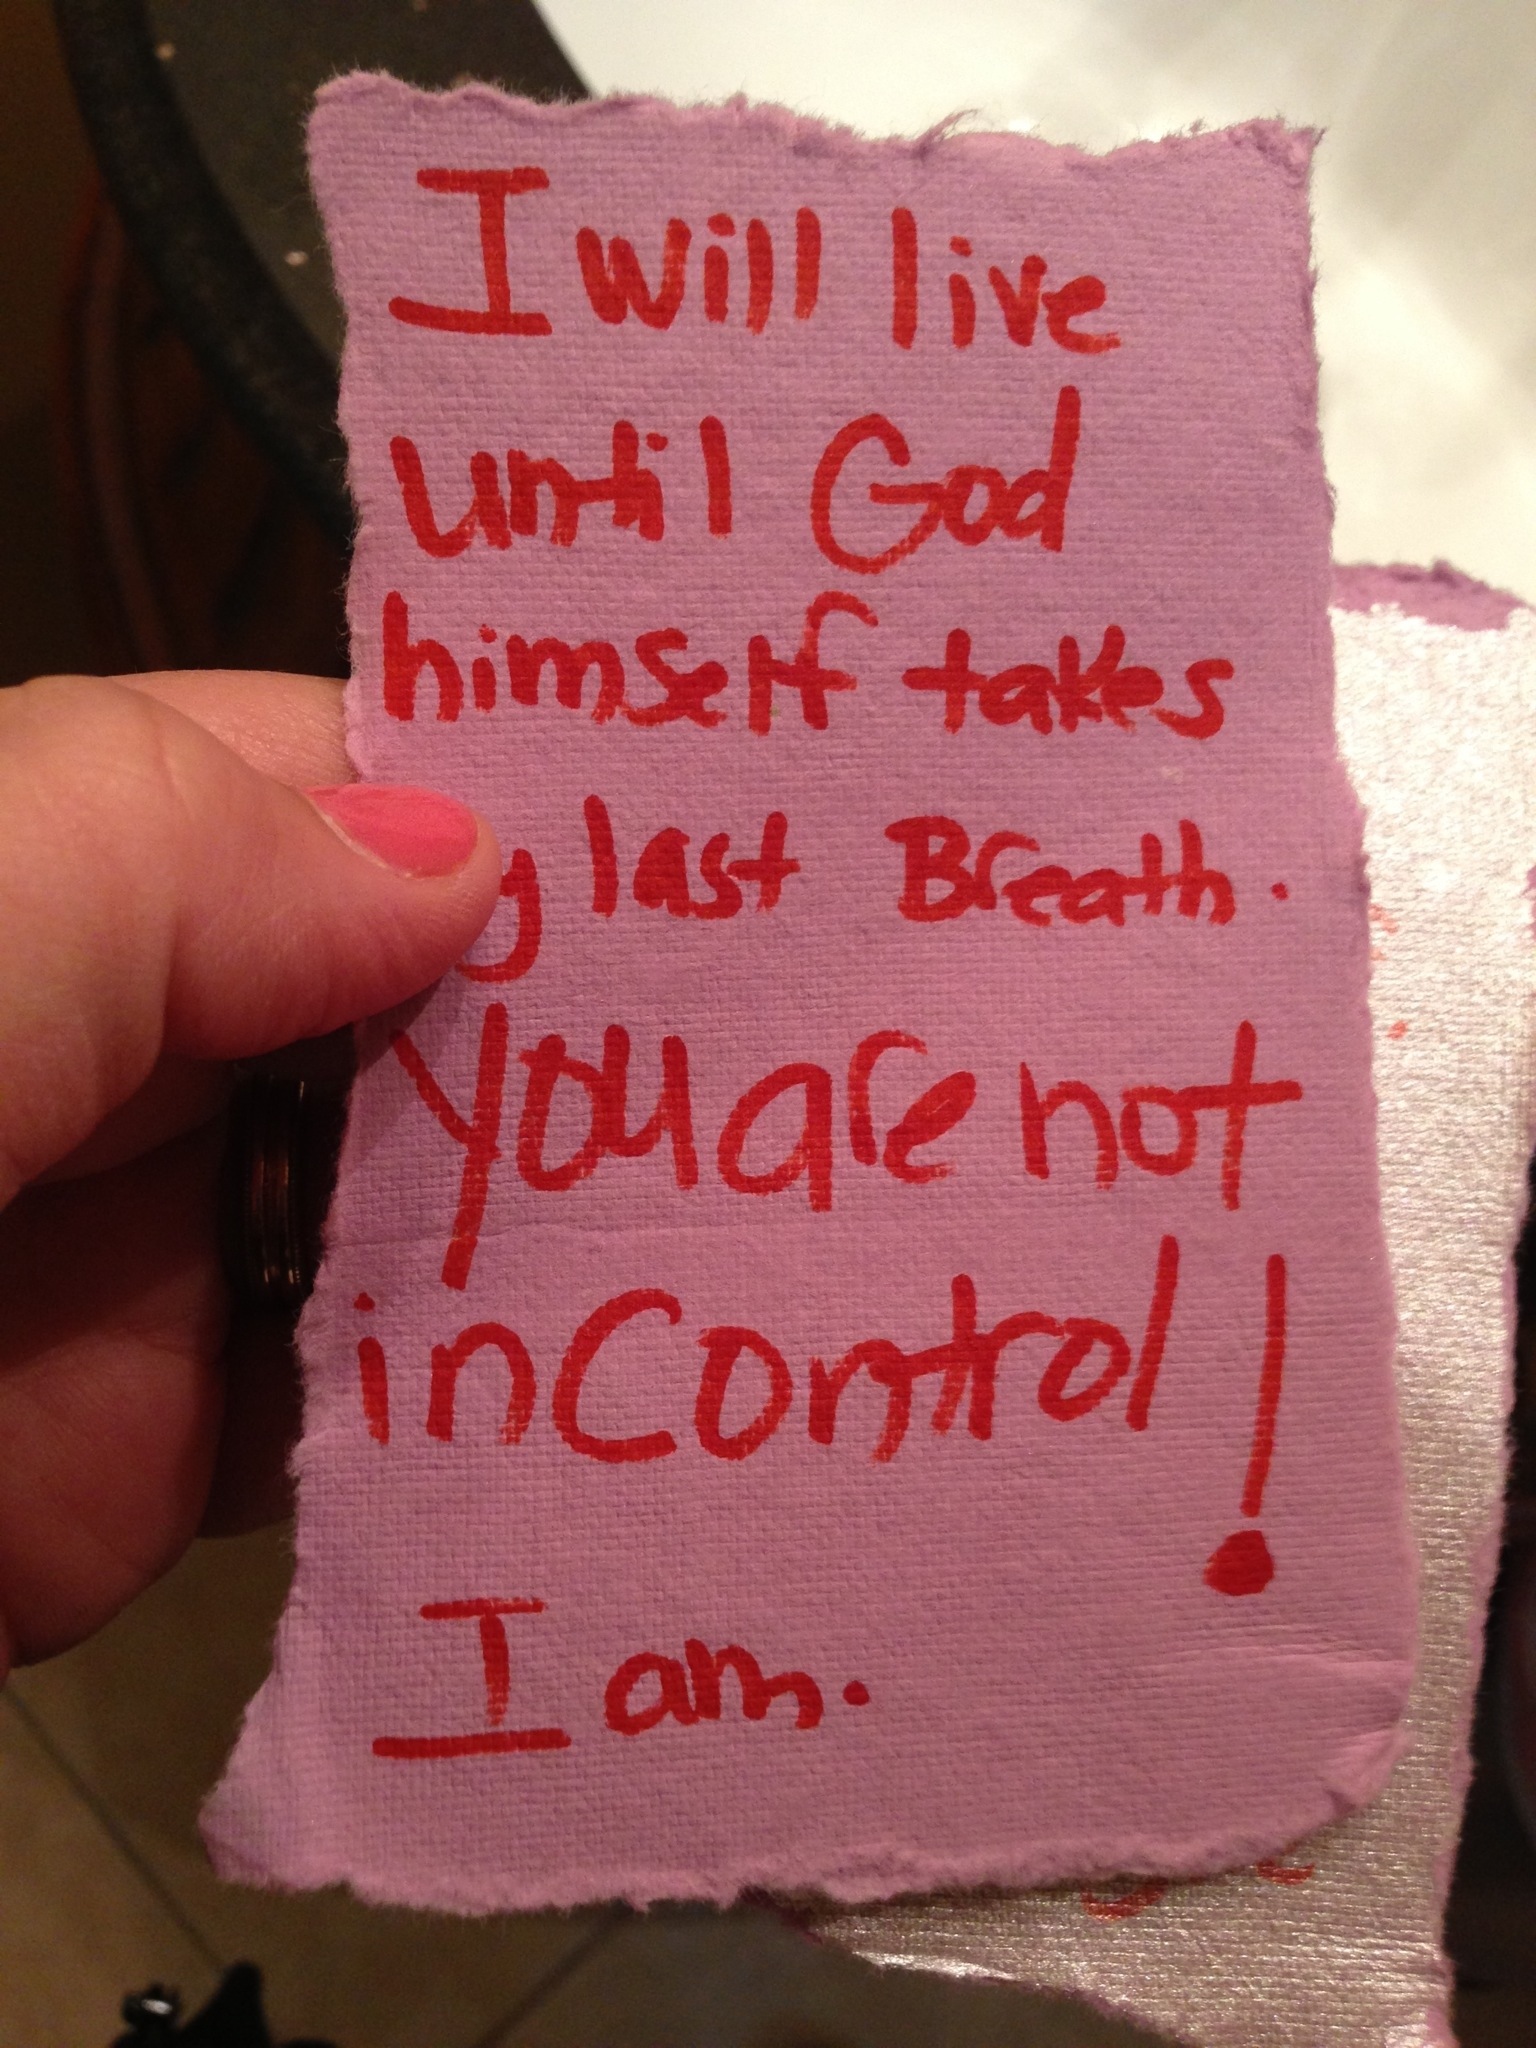 I will live
until God
himself takes
y last Breath.
You are not
in Control!
I am.